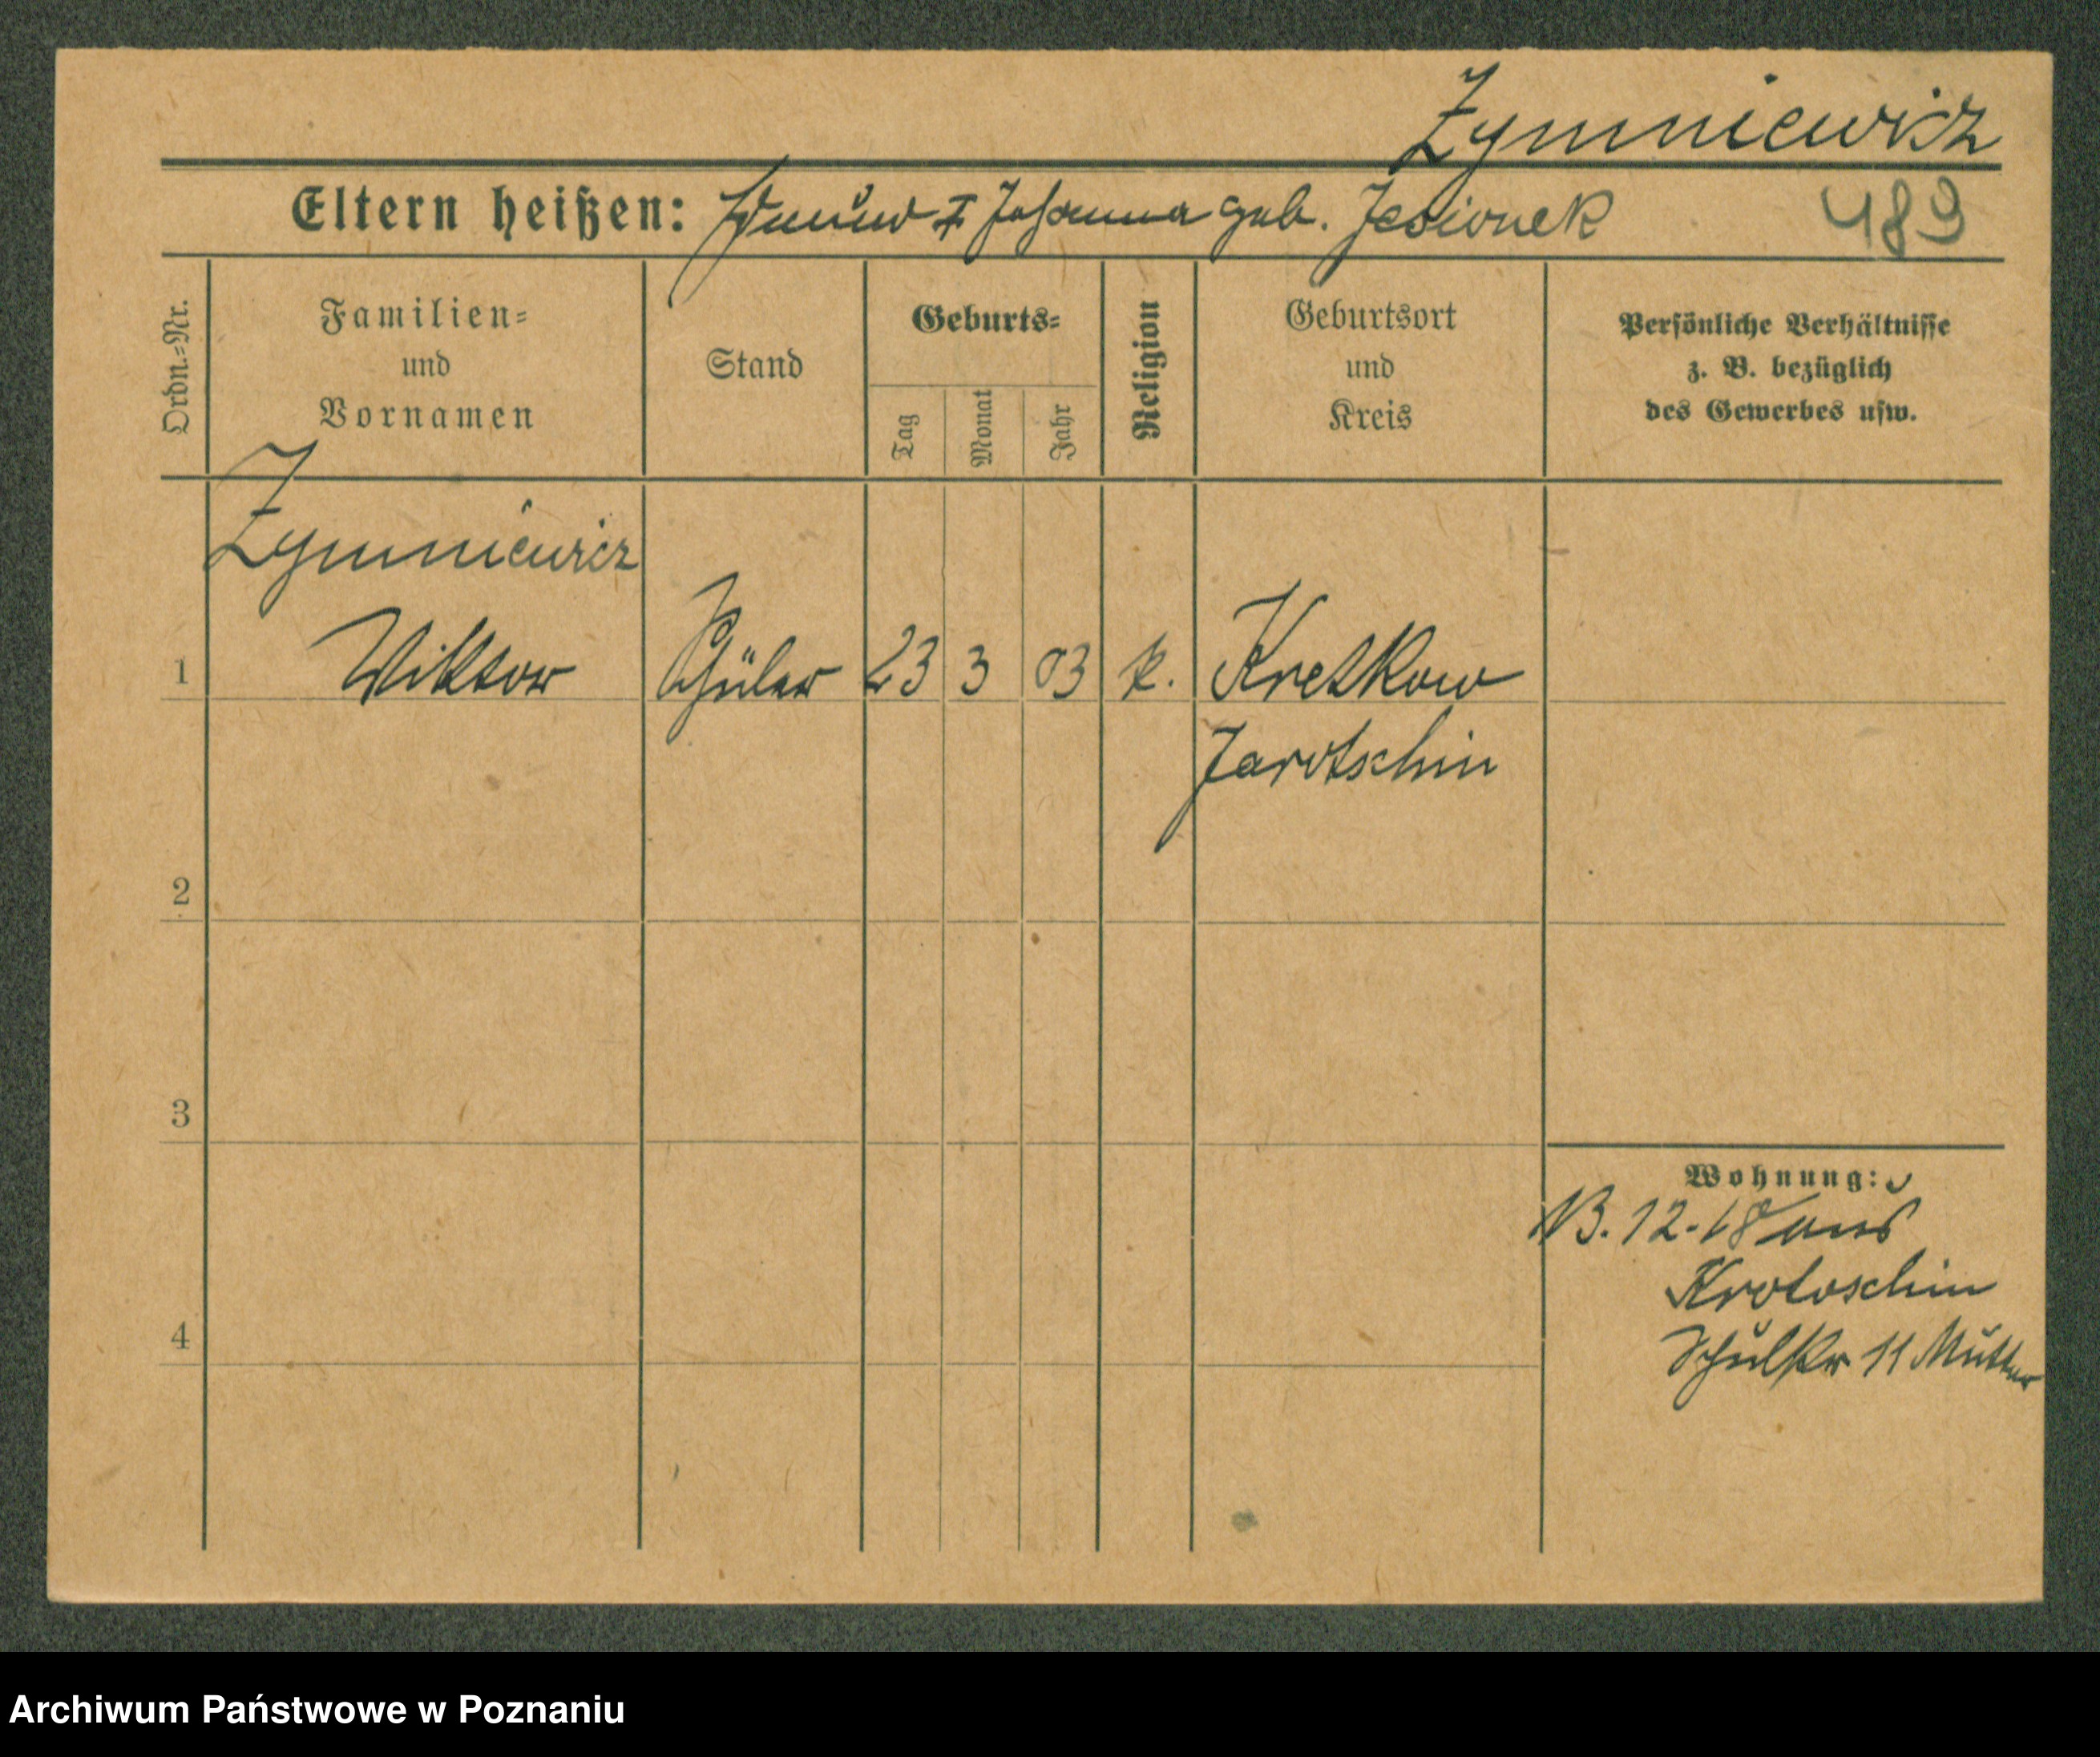 Zymniewicz
Eltern heißen: Johanna geb. Jesionek 489
Ordn.=Nr.
Familien=
und
Vornamen
Stand
Geburts=
Tag
Monat
Jahr
Religion
Geburtsort
und
Kreis
Persönliche Verhältnisse
z. B. bezüglich
des Gewerbes usw.
Zymniewicz
1 Wiktor Schüler 23 3 03 k. Kretkow
Jarotschin
2
3
Wohnung:
12.18 aus
Krotoschin
4 11 Mutter
Archiwum Państwowe w Poznaniu